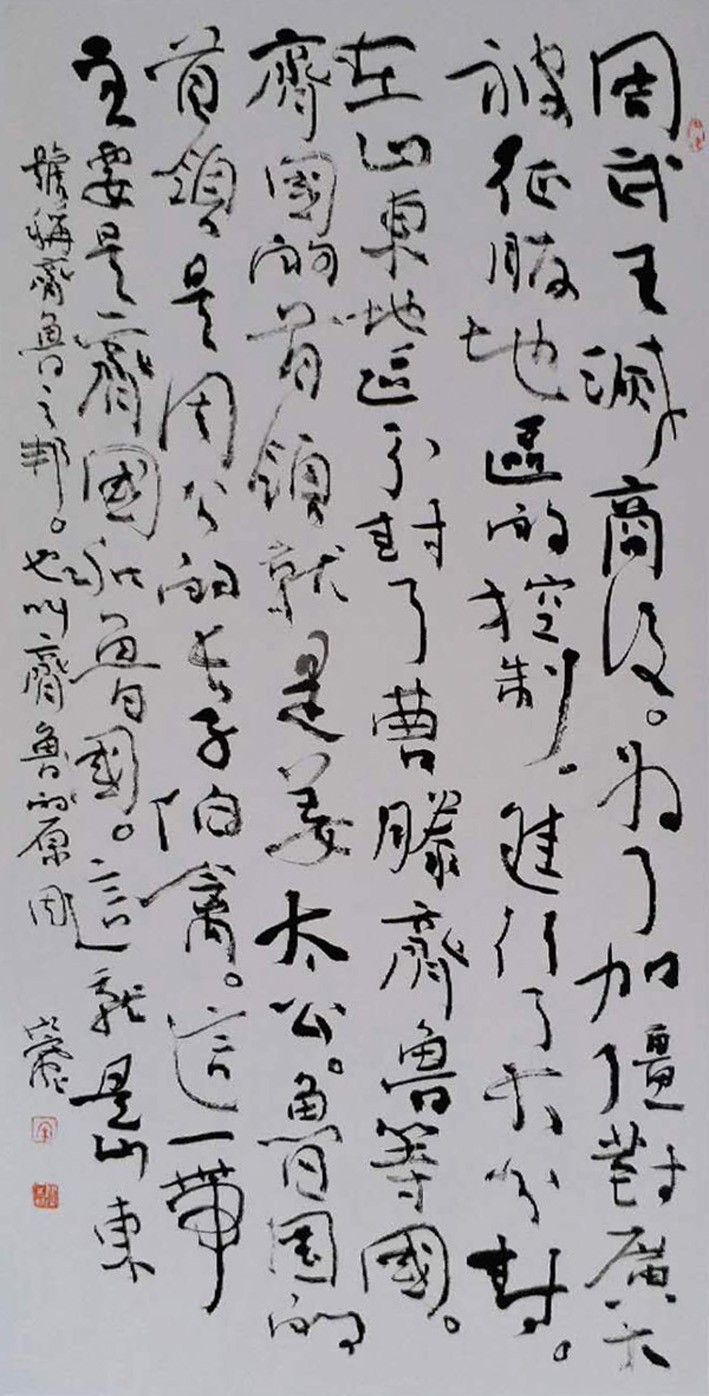 周武王滅商後。为了加彊對廣大
被征服地區的控制。進行了大分封。
在山東地區分封了曹滕齊魯等國。
齊國的首領就是姜太公。魯国的
首領是周公的长子伯禽。這一带
主要是齊國和魯國。這就是山東
號稱齊魯之邦。也叫齊魯的原因